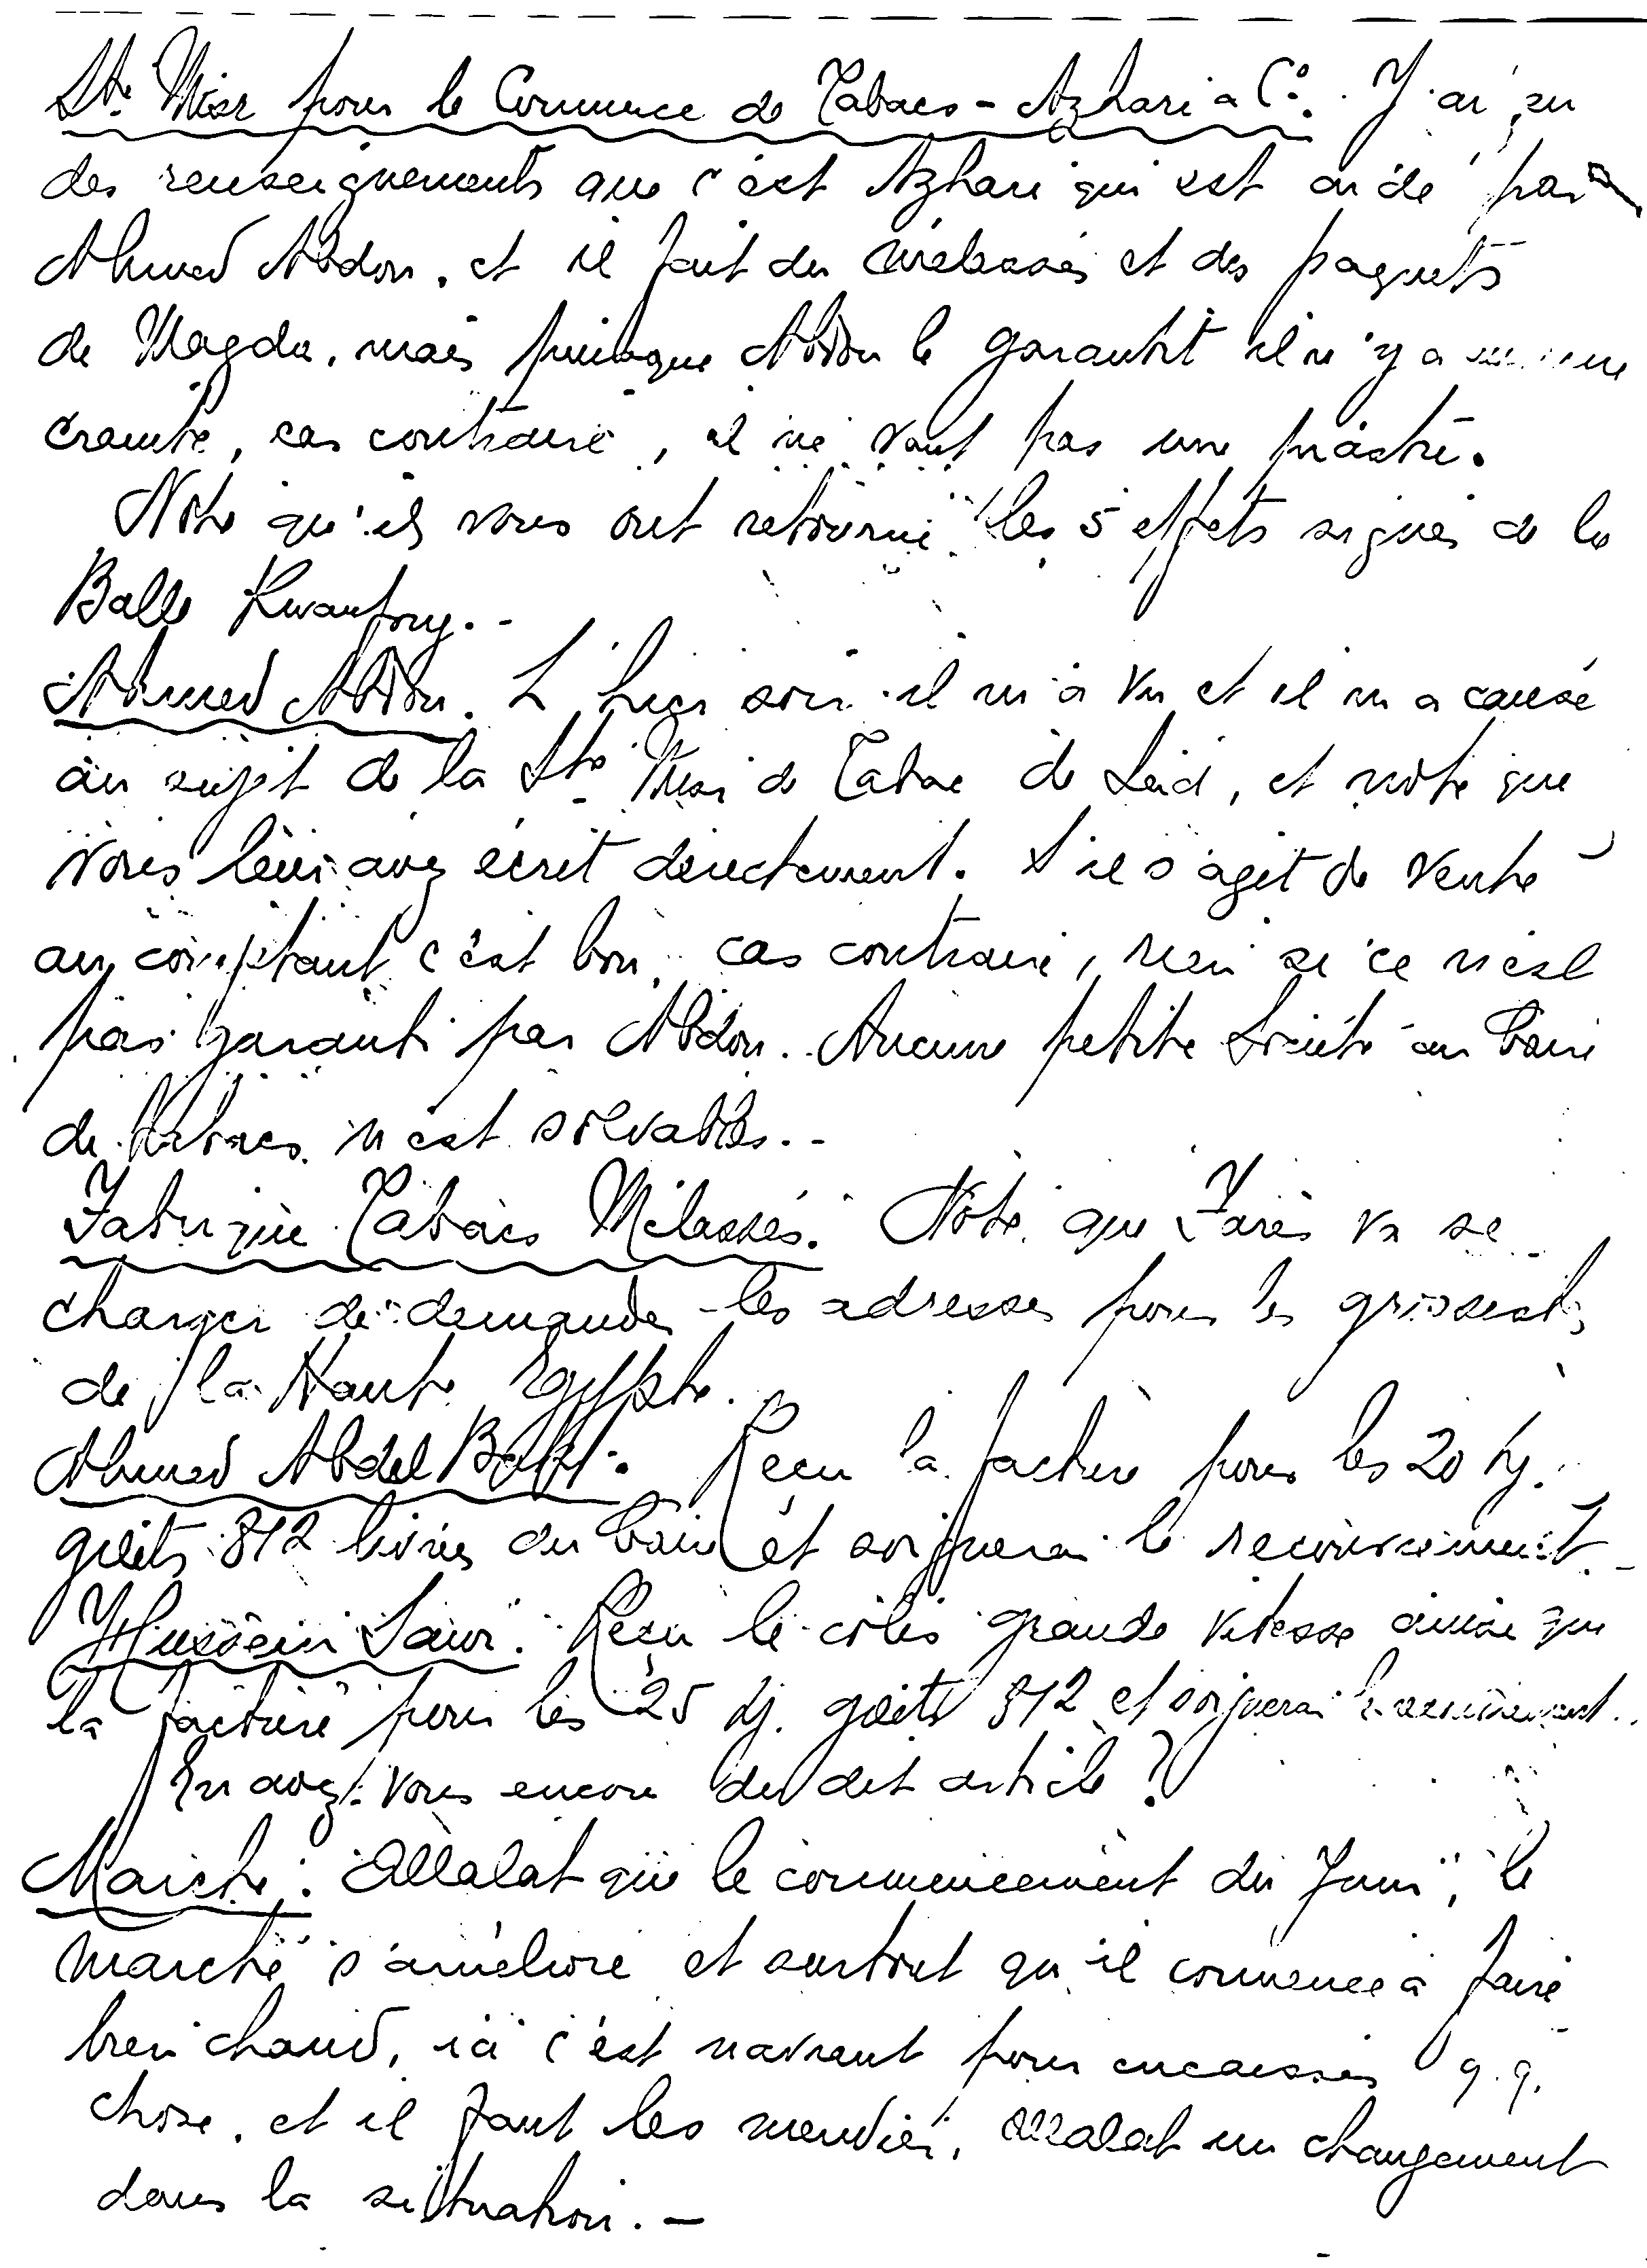 Sté Misr pour le Commerce de Tabacs - Azhari & Co. J'ai eu
des renseignements que c'est Azhari qui est aidé par
Ahmed Abdou, et il fait des mélassés et des paquets
de Magda, mais puisque Abdou le garantit il n'y a
crainte, cas contraire, il ne vaut pas une piastre.
Note qu'ils vous ont retourné les 5 effets signés de la
Balle Kwantung.-
Ahmed Abdou. L'hier soir il m'a vu et il m'a causé
au sujet de la Sté Misr de Tabac de Said, et note que
vous leur avez écrit directement. S'il s'agit de vente
au comptant c'est bon, cas contraire, rien si ce n'est
pas garanti par Abdou. Aucune petite Société au Caire
de tabacs n'est solvable.-
Fabrique Tabacs Mélassés. Note que Farès va se
charger de demander les adresses pour les
de la Haute Egypte.
Ahmed Abdel Reçu la facture pour les 20 kg.
812 livrés au Caire et soignerai le recouvrement.-
Hussein Reçu le colis grande vitesse ainsi que
la facture pour les 25 kg. 812 et soignerai
En avez-vous encore du dit article?
Marché: Allalat que le commencement du Juin, le
marché s'améliore et surtout qu'il commence à faire
bien chaud, ici c'est navrant pour encaisser q.q.
chose, et il faut les mendier, allalat un changement
dans la situation.-